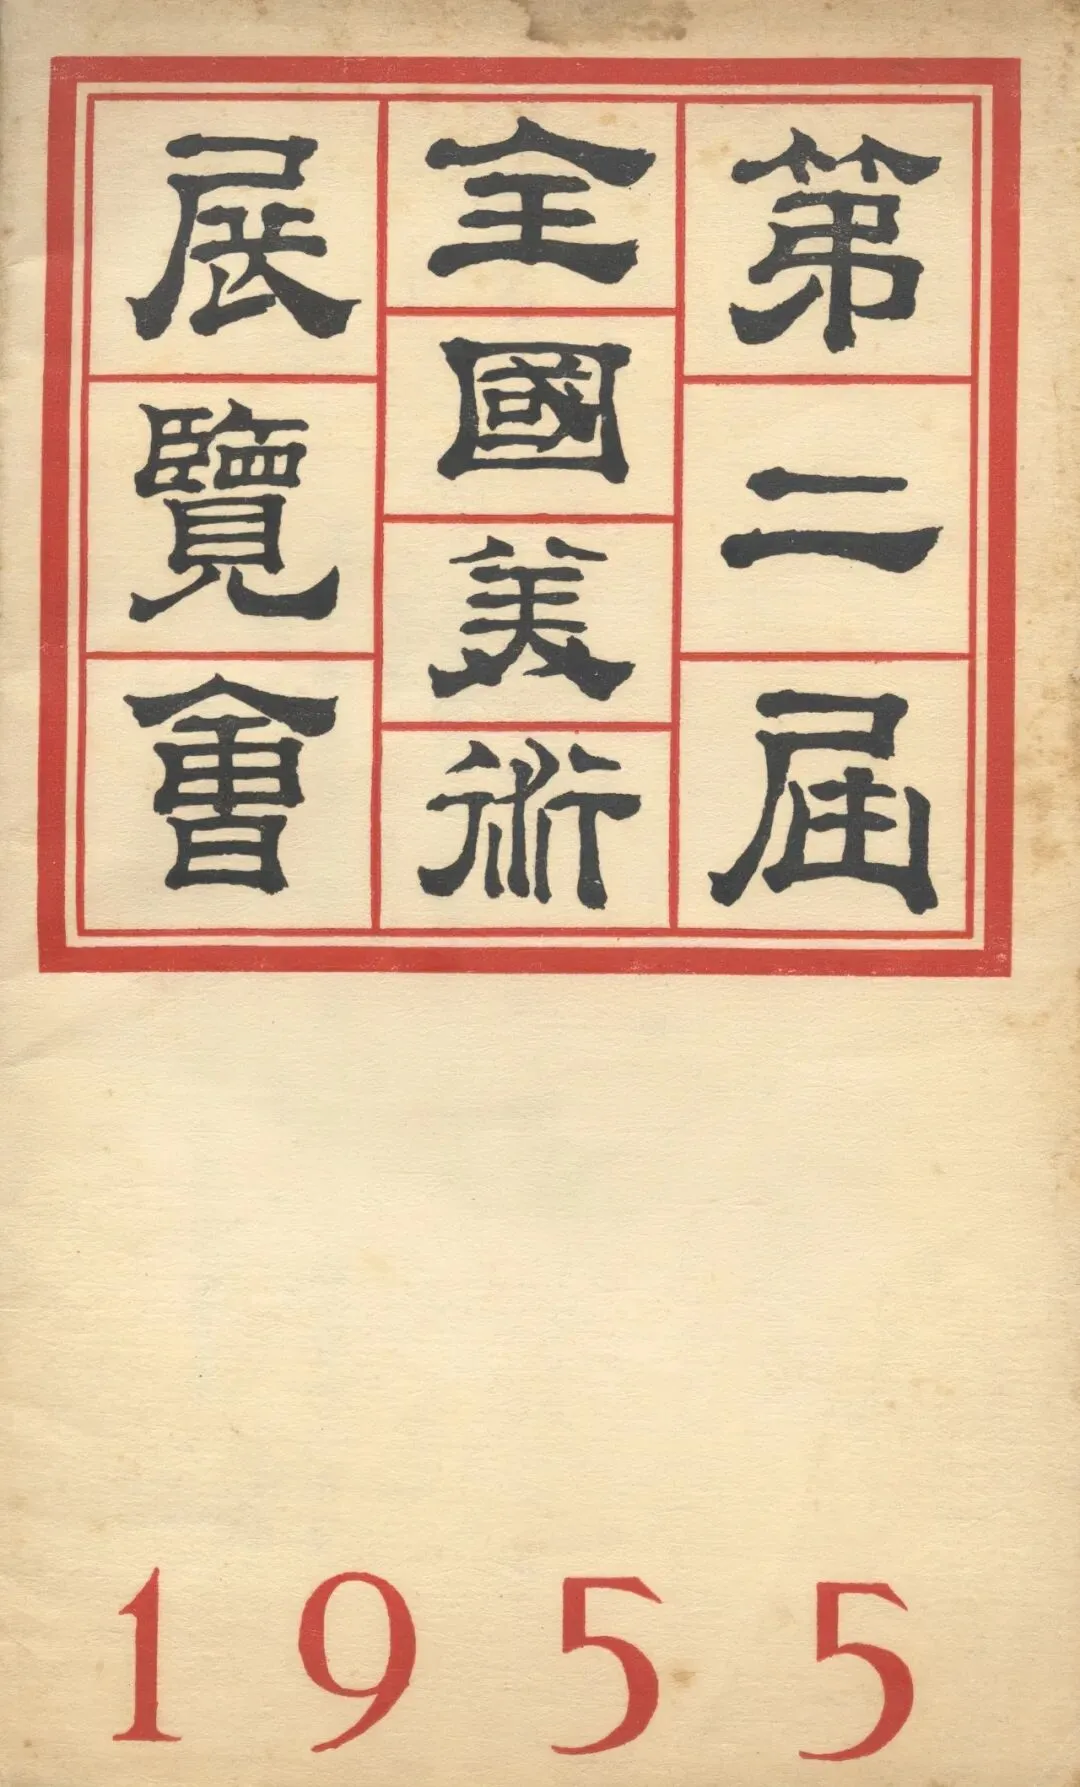 第二屆
全國美術
展覽會
1955